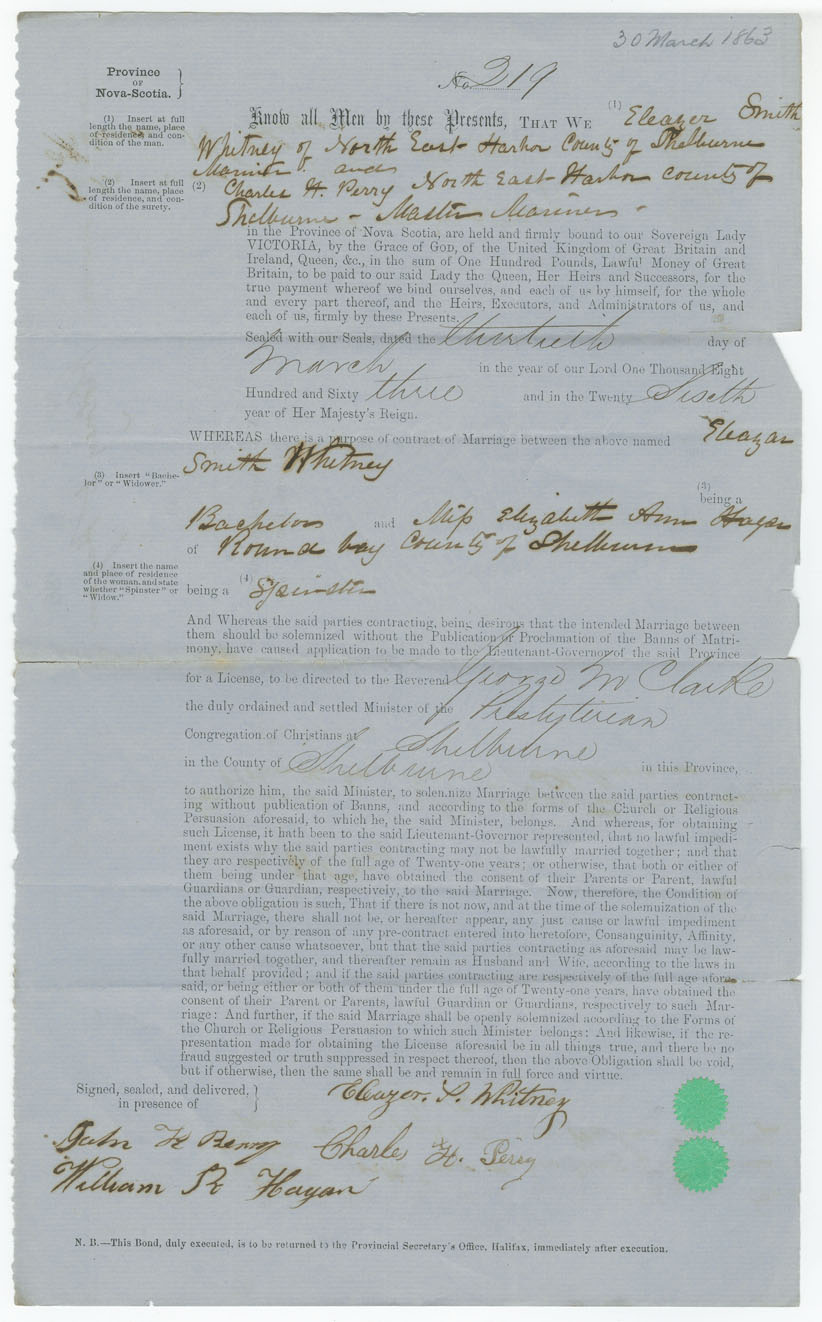 30 March 1863
Province
OF
Nova-Scotia.
No. 219
(1) Insert at full
length the name, place
of residence and con-
dition of the man.
Know all Men by these Presents, THAT WE (1) Eleazer Smith
Whitney of North East Harbor County of Shelburne
Mariner and
(2) Insert at full
length the name, place
of residence, and con-
dition of the surety.
(2) Charles H. Perry North East Harbor County of
Shelburne - Master Mariner -
in the Province of Nova Scotia, are held and firmly bound to our Sovereign Lady
VICTORIA, by the Grace of GOD, of the United Kingdom of Great Britain and
Ireland, Queen, &c., in the sum of One Hundred Pounds, Lawful Money of Great
Britain, to be paid to our said Lady the Queen, Her Heirs and Successors, for the
true payment whereof we bind ourselves, and each of us by himself, for the whole
and every part thereof, and the Heirs, Executors, and Administrators of us, and
each of us, firmly by these Presents.
Sealed with our Seals, dated the thirtieth day of
March in the year of our Lord One Thousand Eight
Hundred and Sixty three and in the Twenty Sixth
year of Her Majesty's Reign.
WHEREAS there is a purpose of contract of Marriage between the above named Eleazar
Smith Whitney
(3) Insert "Bache-
lor" or "Widower."
(3)
being a
Bachelor and Miss Elizabeth Ann
of Round bay County of Shelburne
(4) Insert the name
and place of residence
of the woman, and state
whether "Spinster" or
"Widow."
being a (4) Spinster
And Whereas the said parties contracting, being desirous that the intended Marriage between
them should be solemnized without the Publication or Proclamation of the Banns of Matri-
mony, have caused application to be made to the Lieutenant-Governor of the said Province
for a License, to be directed to the Reverend George M Clarke
the duly ordained and settled Minister of the Presbyterian
Congregation of Christians at Shelburne
in the County of Shelburne in this Province,
to authorize him, the said Minister, to solemnize Marriage between the said parties contract-
ing without publication of Banns, and according to the forms of the Church or Religious
Persuasion aforesaid, to which he, the said Minister, belongs. And whereas, for obtaining
such License, it hath been to the said Lieutenant-Governor represented, that no lawful impedi-
ment exists why the said parties contracting may not be lawfully married together; and that
they are respectively of the full age of Twenty-one years; or otherwise, that both or either of
them being under that age, have obtained the consent of their Parents or Parent, lawful
Guardians or Guardian, respectively, to the said Marriage. Now, therefore, the Condition of
the above obligation is such, That if there is not now, and at the time of the solemnization of the
said Marriage, there shall not be, or hereafter appear, any just cause or lawful impediment
as aforesaid, or by reason of any pre-contract entered into heretofore, Consanguinity, Affinity,
or any other cause whatsoever, but that the said parties contracting as aforesaid may be law-
fully married together, and thereafter remain as Husband and Wife, according to the laws in
that behalf provided; and if the said parties contracting are respectively of the full age afore-
said, or being either or both of them under the full age of Twenty-one years, have obtained the
consent of their Parent or Parents, lawful Guardian or Guardians, respectively to such Mar-
riage: And further, if the said Marriage shall be openly solemnized according to the Forms of
the Church or Religious Persuasion to which such Minister belongs: And likewise, if the re-
presentation made for obtaining the License aforesaid be in all things true, and there be no
fraud suggested or truth suppressed in respect thereof, then the above Obligation shall be void,
but if otherwise, then the same shall be and remain in full force and virtue.
Signed, sealed, and delivered,
in presence of
Eleazer. S. Whitney
John H
Charles H. Perry
William R Hagan
N. B.—This Bond, duly executed, is to be returned to the Provincial Secretary's Office, Halifax, immediately after execution.